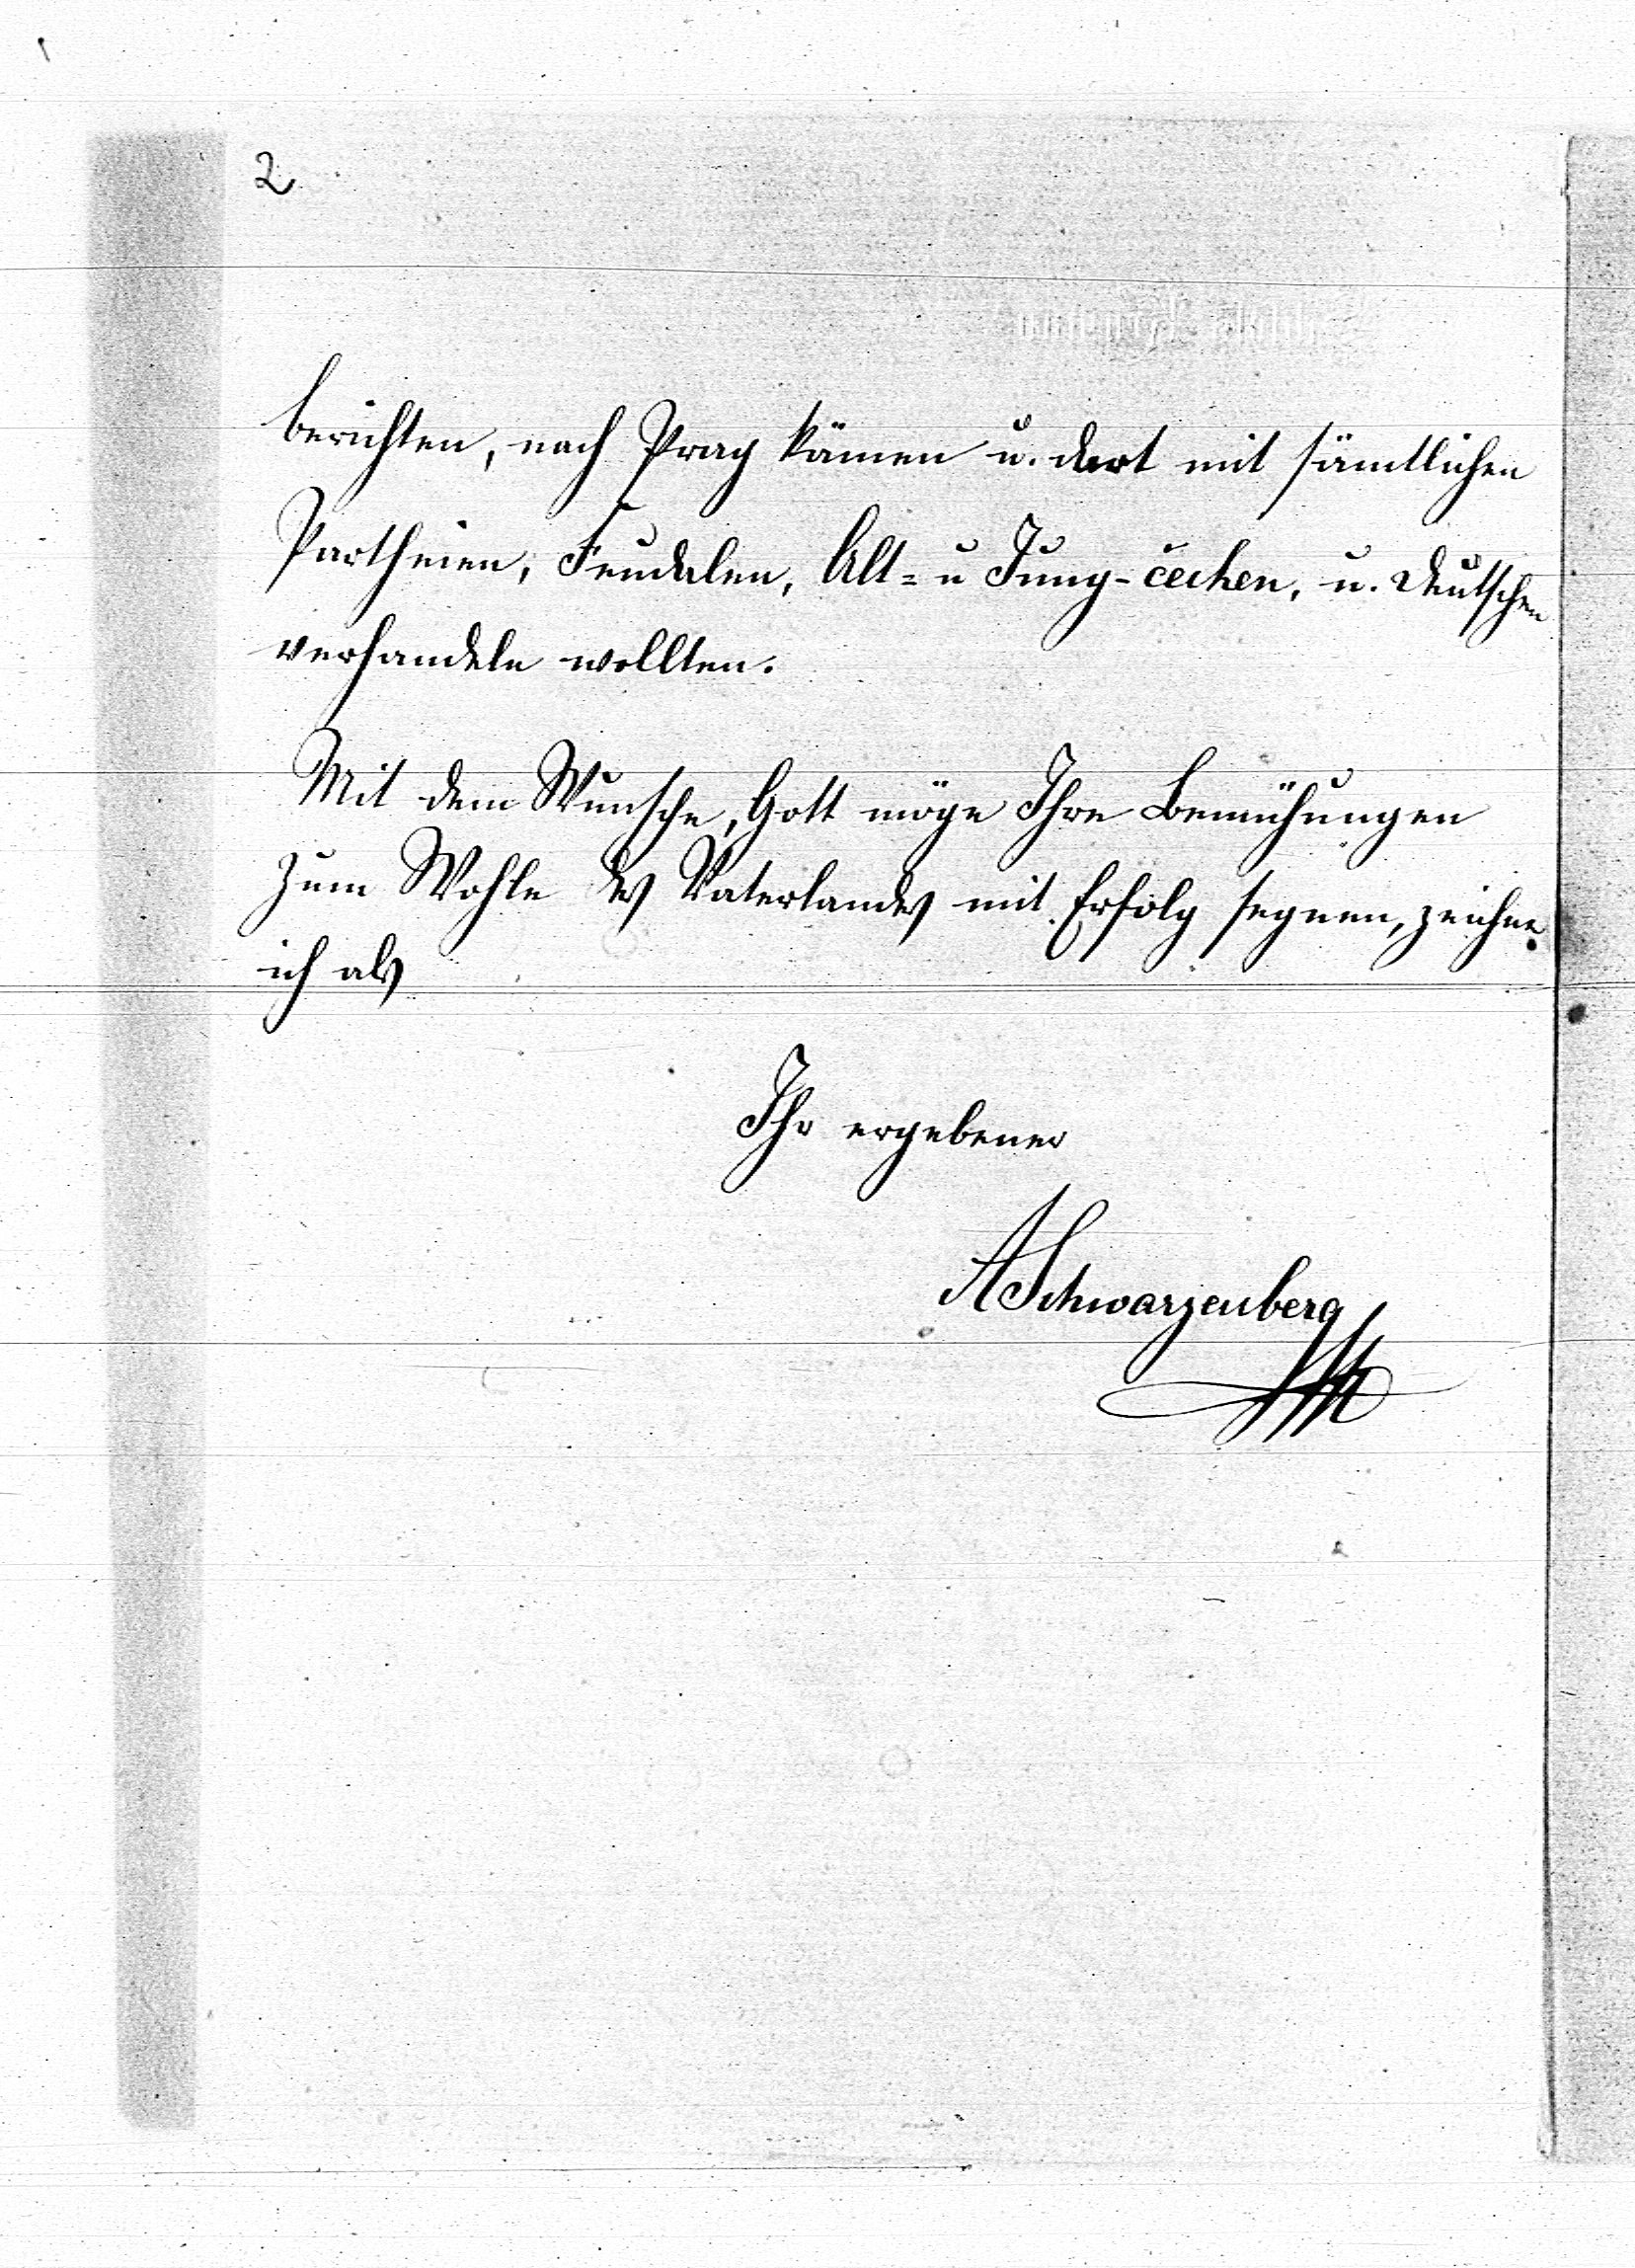 2
berichten, nach Prag kämen u. dort mit sämtlichen
Partheien, Feudalen, Alt= u Jung-čechen, u. Deutschen
verhandeln wollten.
Mit dem Wunsche, Gott möge Ihre Bemühungen
zum Wohle des Vaterlandes mit Erfolg segnen, zeichne
ich als
Ihr ergebener
ASchwarzenberg